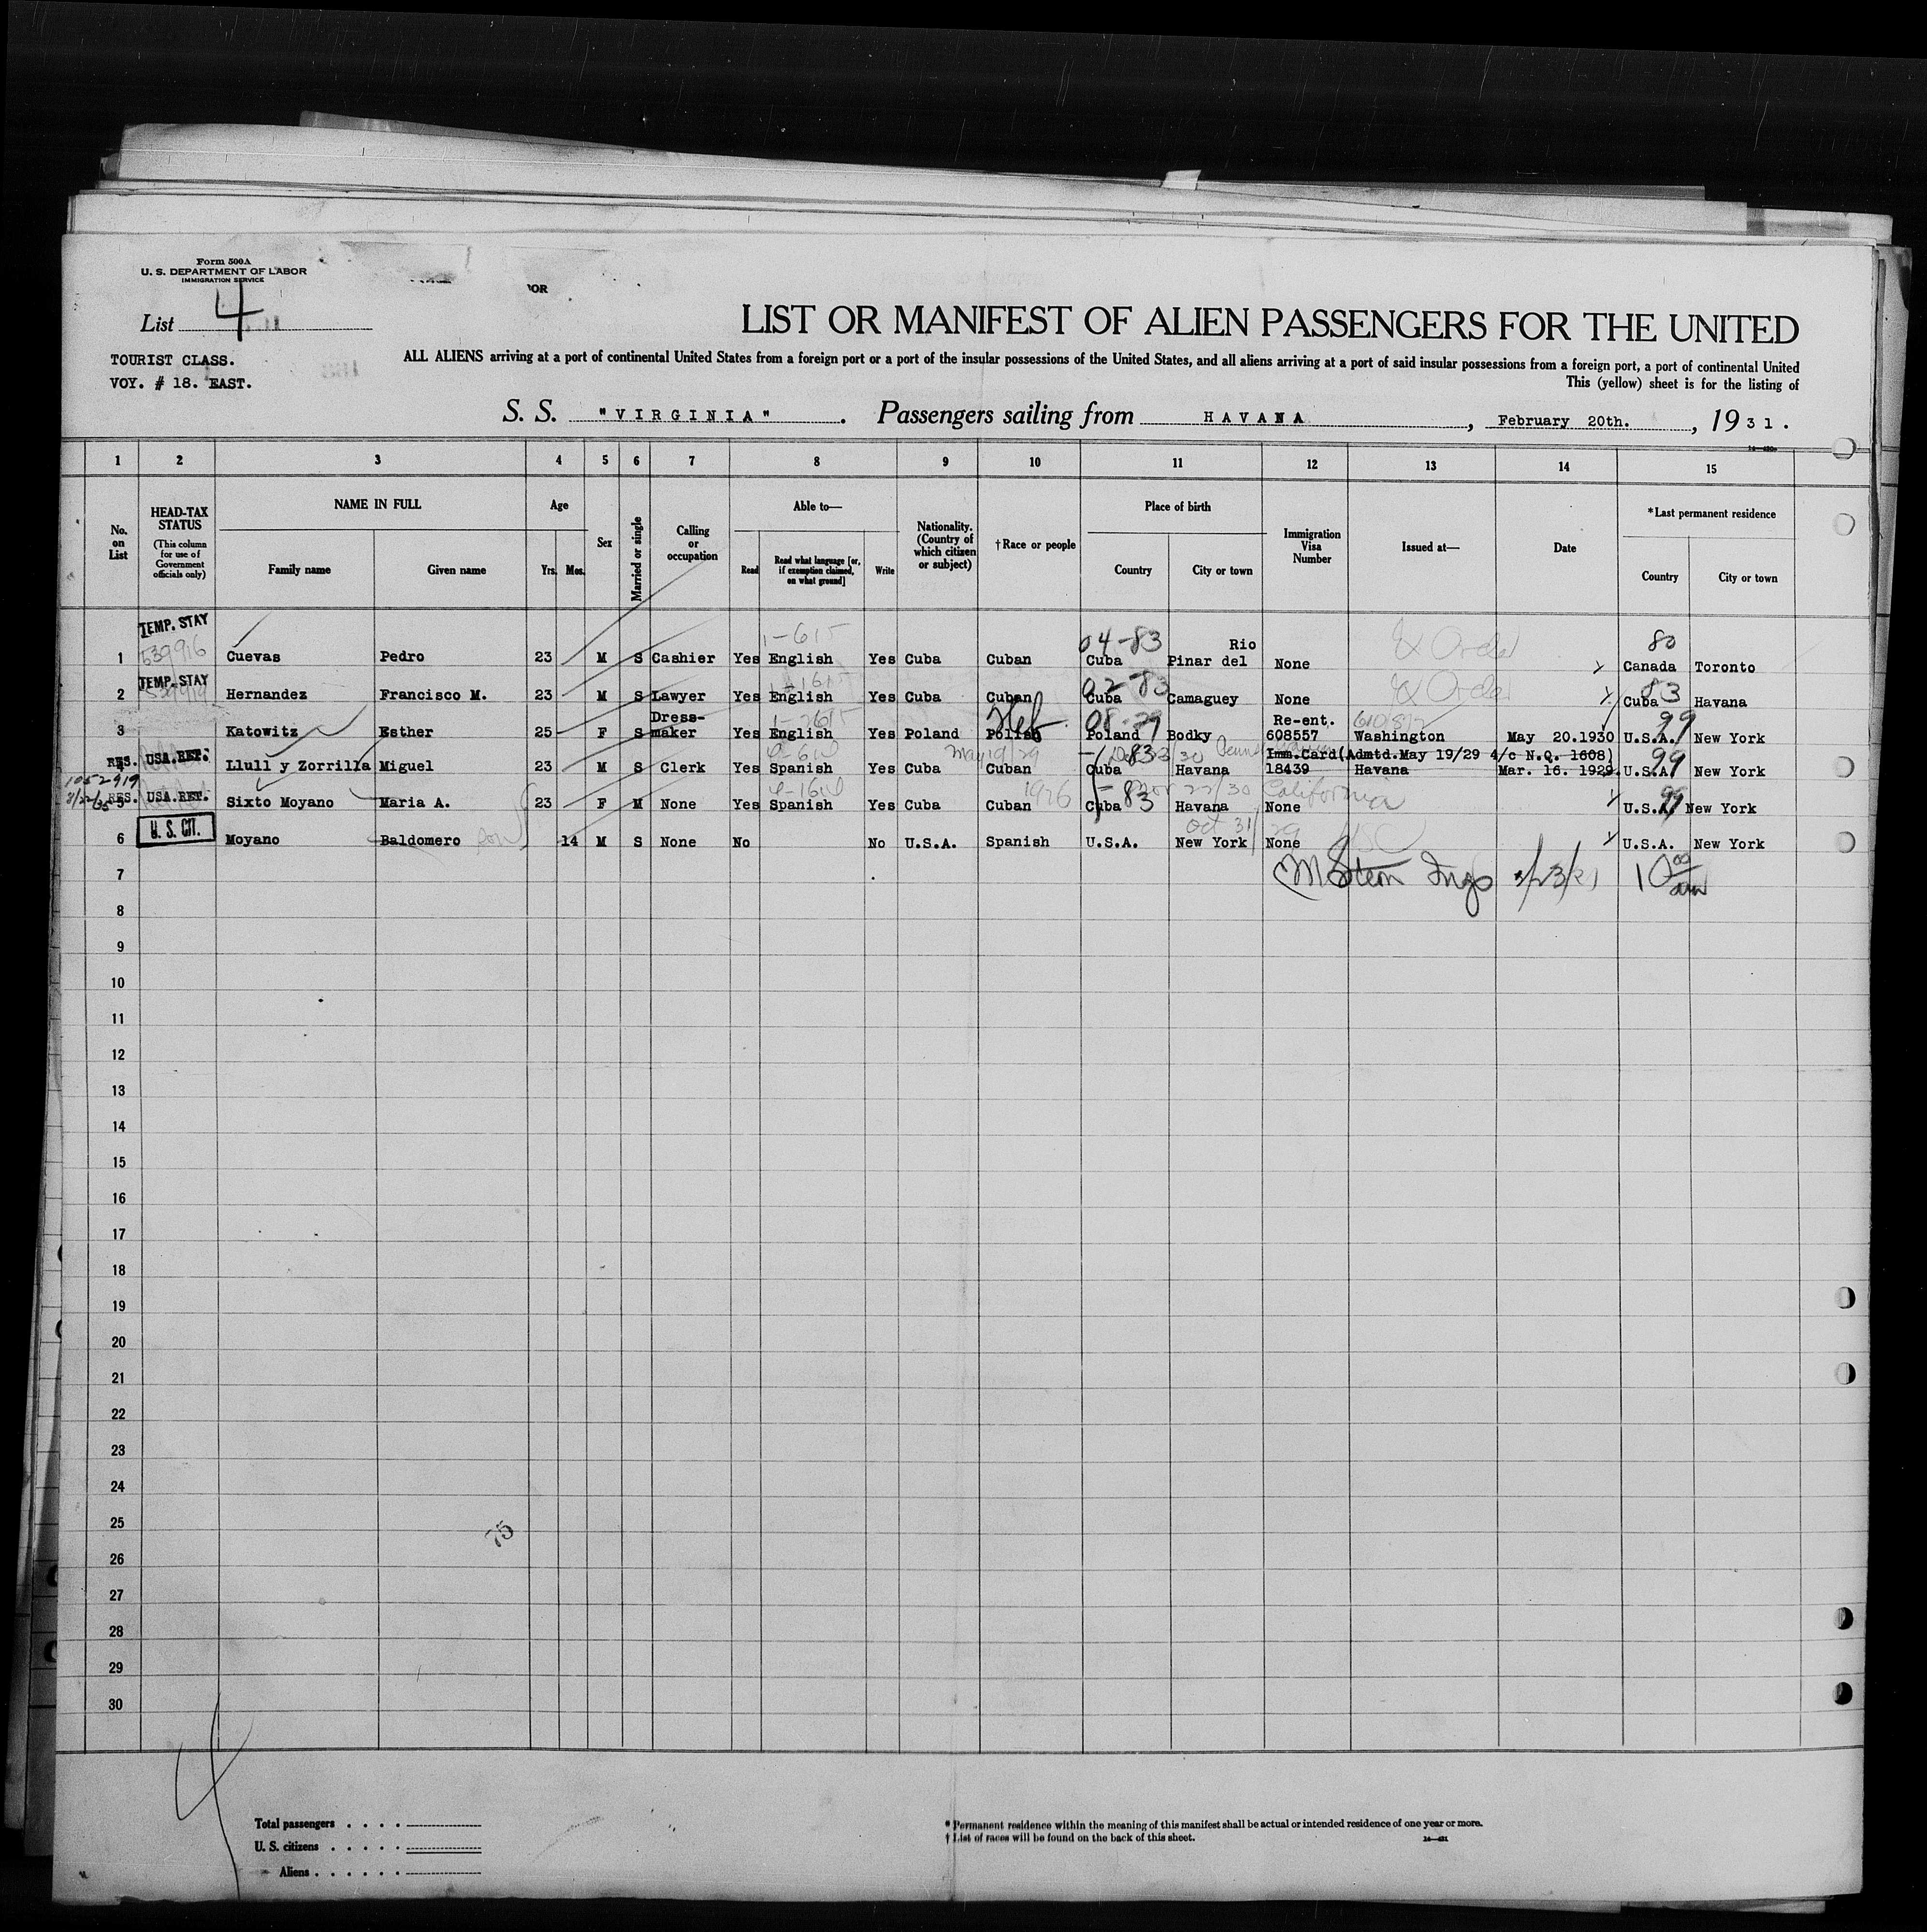 Form 500A
U. S. DEPARTMENT OF LABOR
IMMIGRATION SERVICE
OR
List 4
LIST OR MANIFEST OF ALIEN PASSENGERS FOR THE UNITED
TOURIST CLASS.
VOY. # 18. EAST.
ALL ALIENS arriving at a port of continental United States from a foreign port or a port of the insular possessions of the United States, and all aliens arriving at a port of said insular possessions from a foreign port, a port of continental United
This (yellow) sheet is for the listing of
S. S. "VIRGINIA". Passengers sailing from HAVANA, February 20th., 1931.
1 2 3 4 5 6 7 8 9 10 11 12 13 14 15
No. on List
HEAD-TAX STATUS (This column for use of Government officials only)
NAME IN FULL
Family name Given name
Age
Yrs. Mos.
Sex
Married or single
Calling or occupation
Able to—
Read Read what language [or, if exemption claimed, on what ground] Write
Nationality. (Country of which citizen or subject)
†Race or people
Place of birth
Country City or town
Immigration Visa Number
Issued at—
Date
*Last permanent residence
Country City or town
TEMP. STAY 1-615 04-83 Rio 80
1 539916 Cuevas Pedro 23 M S Cashier Yes English Yes Cuba Cuban Cuba Pinar del None Canada Toronto
TEMP. STAY 02-83 83
2 Hernandez Francisco M. 23 M S Lawyer Yes English Yes Cuba Cuban Cuba Camaguey None Cuba Havana
Dress- Heb 08-79 Re-ent. 99
3 Katowitz Esther 25 F S maker Yes English Yes Poland Polish Poland Bodky 608557 Washington May 20.1930 U.S.A. New York
May 19/29 83 Imm.Card(Admtd.May 19/29 4/c N.Q. 1608) 99
4 RES. USA.RET. Llull y Zorrilla Miguel 23 M S Clerk Yes Spanish Yes Cuba Cuban Cuba Havana 18439 Havana Mar. 16. 1929. U.S.A. New York
1926 83 Nov 22/30 California 99
5 RES. USA.RET. Sixto Moyano Maria A. 23 F M None Yes Spanish Yes Cuba Cuban Cuba Havana None U.S.A. New York
U. S. CIT. Oct 31/29
6 Moyano Baldomero son 14 M S None No No U.S.A. Spanish U.S.A. New York None U.S.A. New York
7 10 00 am
8
9
10
11
12
13
14
15
16
17
18
19
20
21
22
23
24
25
75
26
27
28
29
30
4
Total passengers . . . .
U. S. citizens . . . . .
Aliens . . . . . .
* Permanent residence within the meaning of this manifest shall be actual or intended residence of one year or more.
† List of races will be found on the back of this sheet.